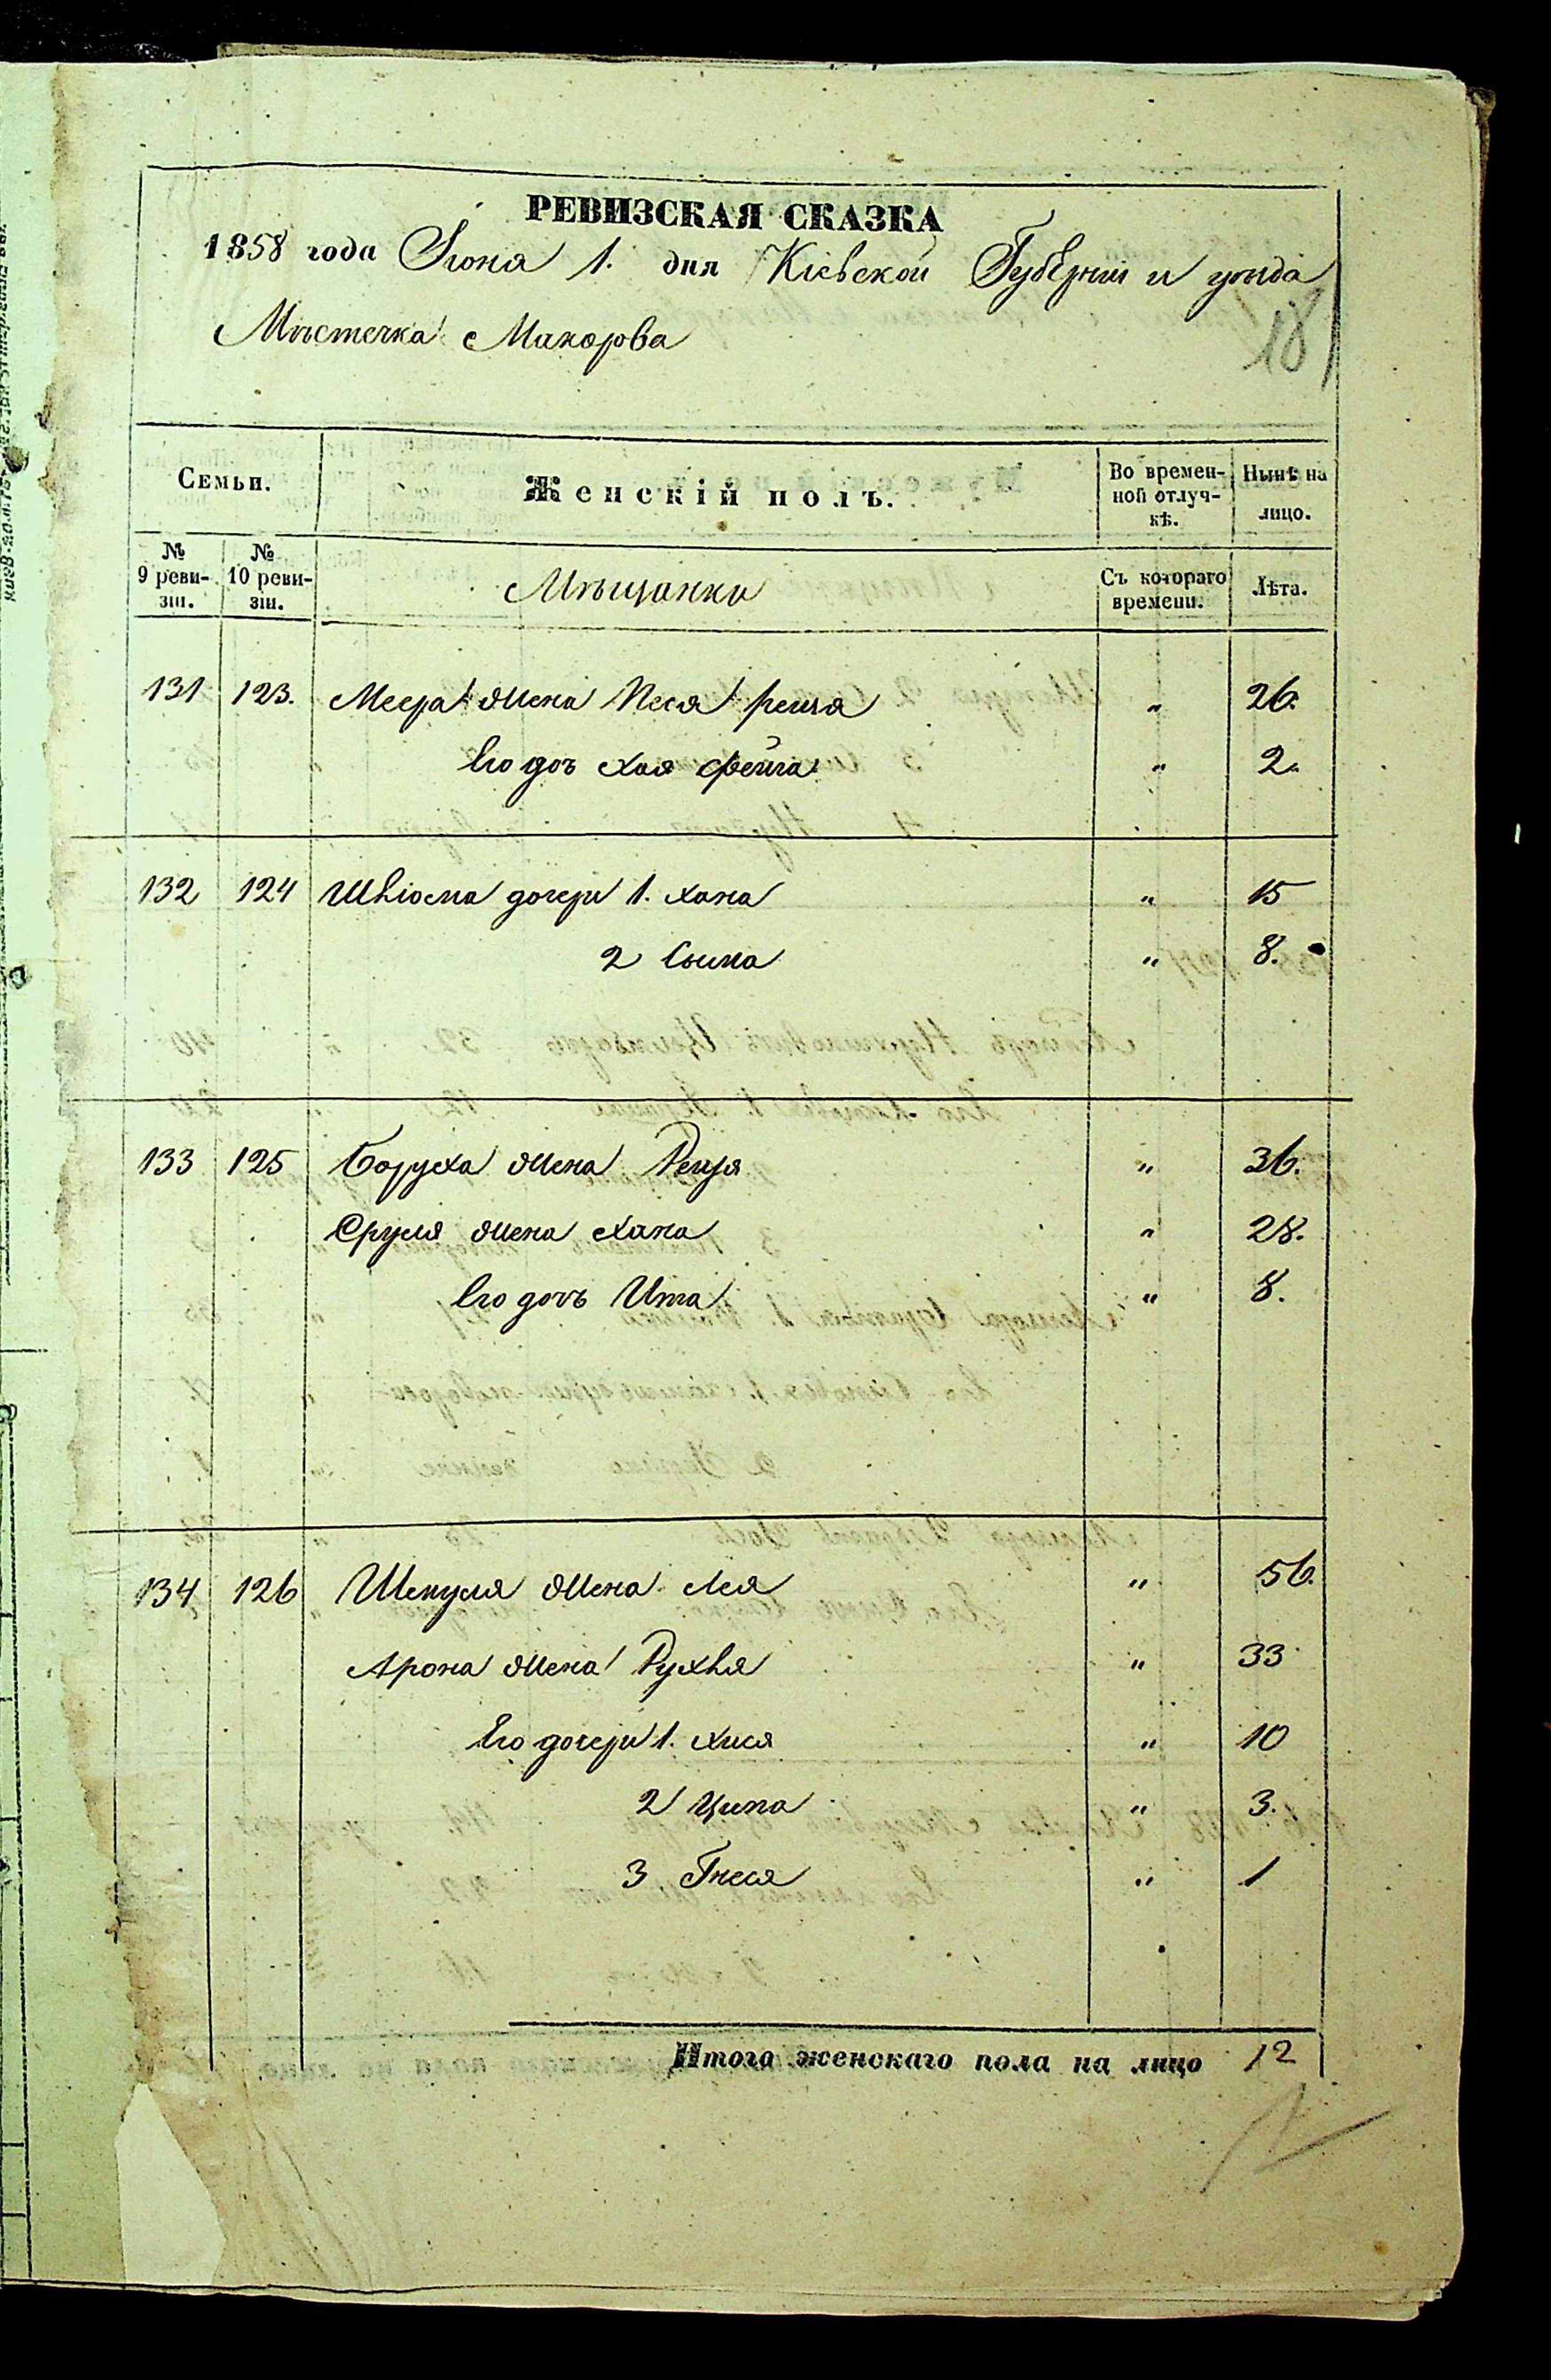 РЕВИЗСКАЯ СКАЗКА
1858 года Іюня 1. дня Кіевской Губерніи и уѣзда
Мѣстечка Макарова
181
Семьи.
Женскій полъ.
Во времен-
ной отлуч-
кѣ.
Нынѣ на
лицо.
№
9 реви-
зіи.
№
10 реви-
зіи.
Мѣщанки
Съ котораго
времени.
Лѣта.
131 123. Меера жена Песя реиза " 26.
Его дочъ Хая Фейга " 2.
132 124 Шліома дочери 1. Хана " 15
2 Сима " 8.
133 125 Боруха жена Рейзя " 36.
Сруля жена Хана " 28.
Его дочъ Ита " 8.
134 126 Шепуля жена Лея " 56.
Арона жена Рухля " 33
Его дочери 1. Хися " 10
2 Ципа " 3.
3 Гнеся " 1
Итого женскаго пола на лицо 12